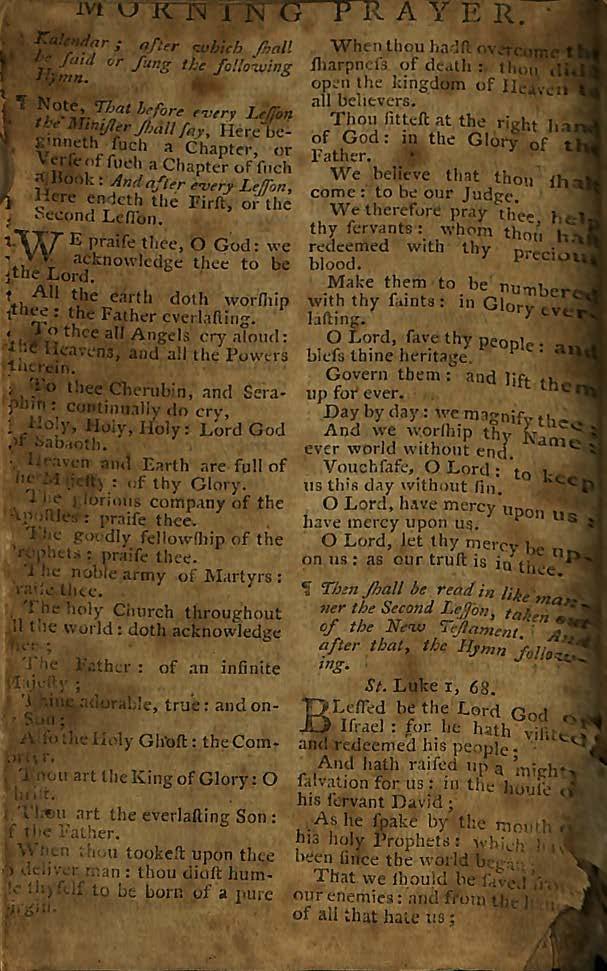 MORNING PRAYER.
Kalendar; after which ſhall
be ſaid or ſung the following
Hymn.
¶ Note, That before every Leſſon
the Miniſter ſhall ſay, Here be-
ginneth ſuch a Chapter, or
Verſe of ſuch a Chapter of ſuch
a Book: And after every Leſſon,
Here endeth the Firſt, or the
Second Leſſon.
WE praiſe thee, O God: we
acknowledge thee to be
the Lord.
All the earth doth worſhip
thee: the Father everlaſting.
To thee all Angels cry aloud:
the Heavens, and all the Powers
therein.
To thee Cherubin, and Sera-
phin: continually do cry,
Holy, Holy, Holy: Lord God
of Sabaoth.
Heaven and Earth are full of
he Majeſty: of thy Glory.
The glorious company of the
Apoſtles: praiſe thee.
The goodly fellowſhip of the
rophets: praiſe thee.
The noble army of Martyrs:
raiſe thee.
The holy Church throughout
ll the world: doth acknowledge
hee;
The Father: of an infinite
Majeſty;
Thine adorable, true: and on-
Son;
Alſo the Holy Ghoſt: the Com-
Thou art the King of Glory: O
Thou art the everlaſting Son:
f the Father.
When thou tookeſt upon thee
o deliver man: thou didſt hum-
le thyſelf to be born of a pure
irgin.
When thou hadſt overcome the
ſharpneſs of death: thou didſt
open the kingdom of Heaven to
all believers.
Thou ſitteſt at the right hand
of God: in the Glory of the
Father.
We believe that thou ſhalt
come: to be our Judge.
We therefore pray thee, help
thy ſervants: whom thou haſt
redeemed with thy precious
blood.
Make them to be numbered
with thy ſaints: in Glory ever-
laſting.
O Lord, ſave thy people: and
bleſs thine heritage.
Govern them: and lift them
up for ever.
Day by day: we magnify thee;
And we worſhip thy Name:
ever world without end.
Vouchſafe, O Lord: to keep
us this day without ſin.
O Lord, have mercy upon us:
have mercy upon us.
O Lord, let thy mercy be up-
on us: as our truſt is in thee.
¶ Then ſhall be read in like man-
ner the Second Leſſon, taken out
of the New Teſtament. And
after that, the Hymn follow-
ing.
St. Luke 1, 68.
BLeſſed be the Lord God of
Iſrael: for he hath viſited
and redeemed his people;
And hath raiſed up a mighty
ſalvation for us: in the houſe of
his ſervant David;
As he ſpake by the mouth of
his holy Prophets: which have
been ſince the world began;
That we ſhould be ſaved from
our enemies: and from the
of all that hate us;